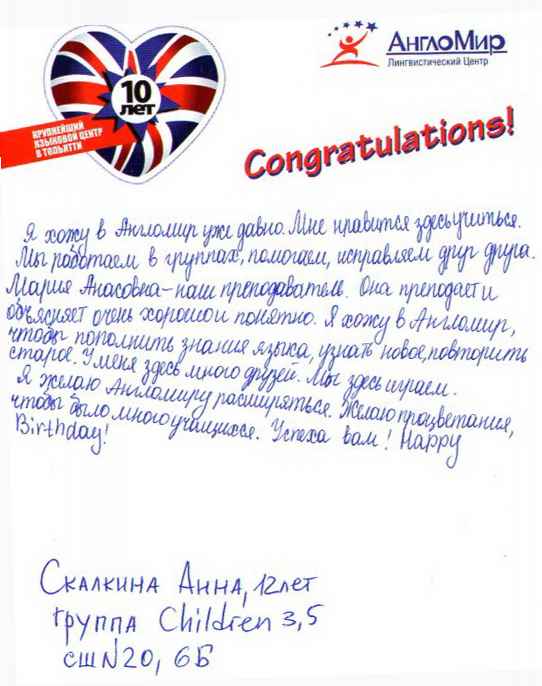 10
лет
КРУПНЕЙШИЙ
ЯЗЫКОВОЙ ЦЕНТР
В ТОЛЬЯТТИ
АнглоМир
Лингвистический Центр
Congratulations!
Я хожу в Англомир уже давно. Мне нравится здесь учиться.
Мы работаем в группах, помогаем, исправляем друг друга.
Мария Анасовна – наш преподаватель. Она преподаёт и
объясняет очень хорошо и понятно. Я хожу в Англомир,
чтобы пополнить знания языка, узнать новое, повторить
старое. У меня здесь много друзей. Мы здесь играем.
Я желаю Англомиру расширяться. Желаю процветания,
чтобы было много учащихся. Успеха вам! Happy
Birthday!
Скалкина Анна, 12 лет
группа Children 3,5
сш N20, 6Б